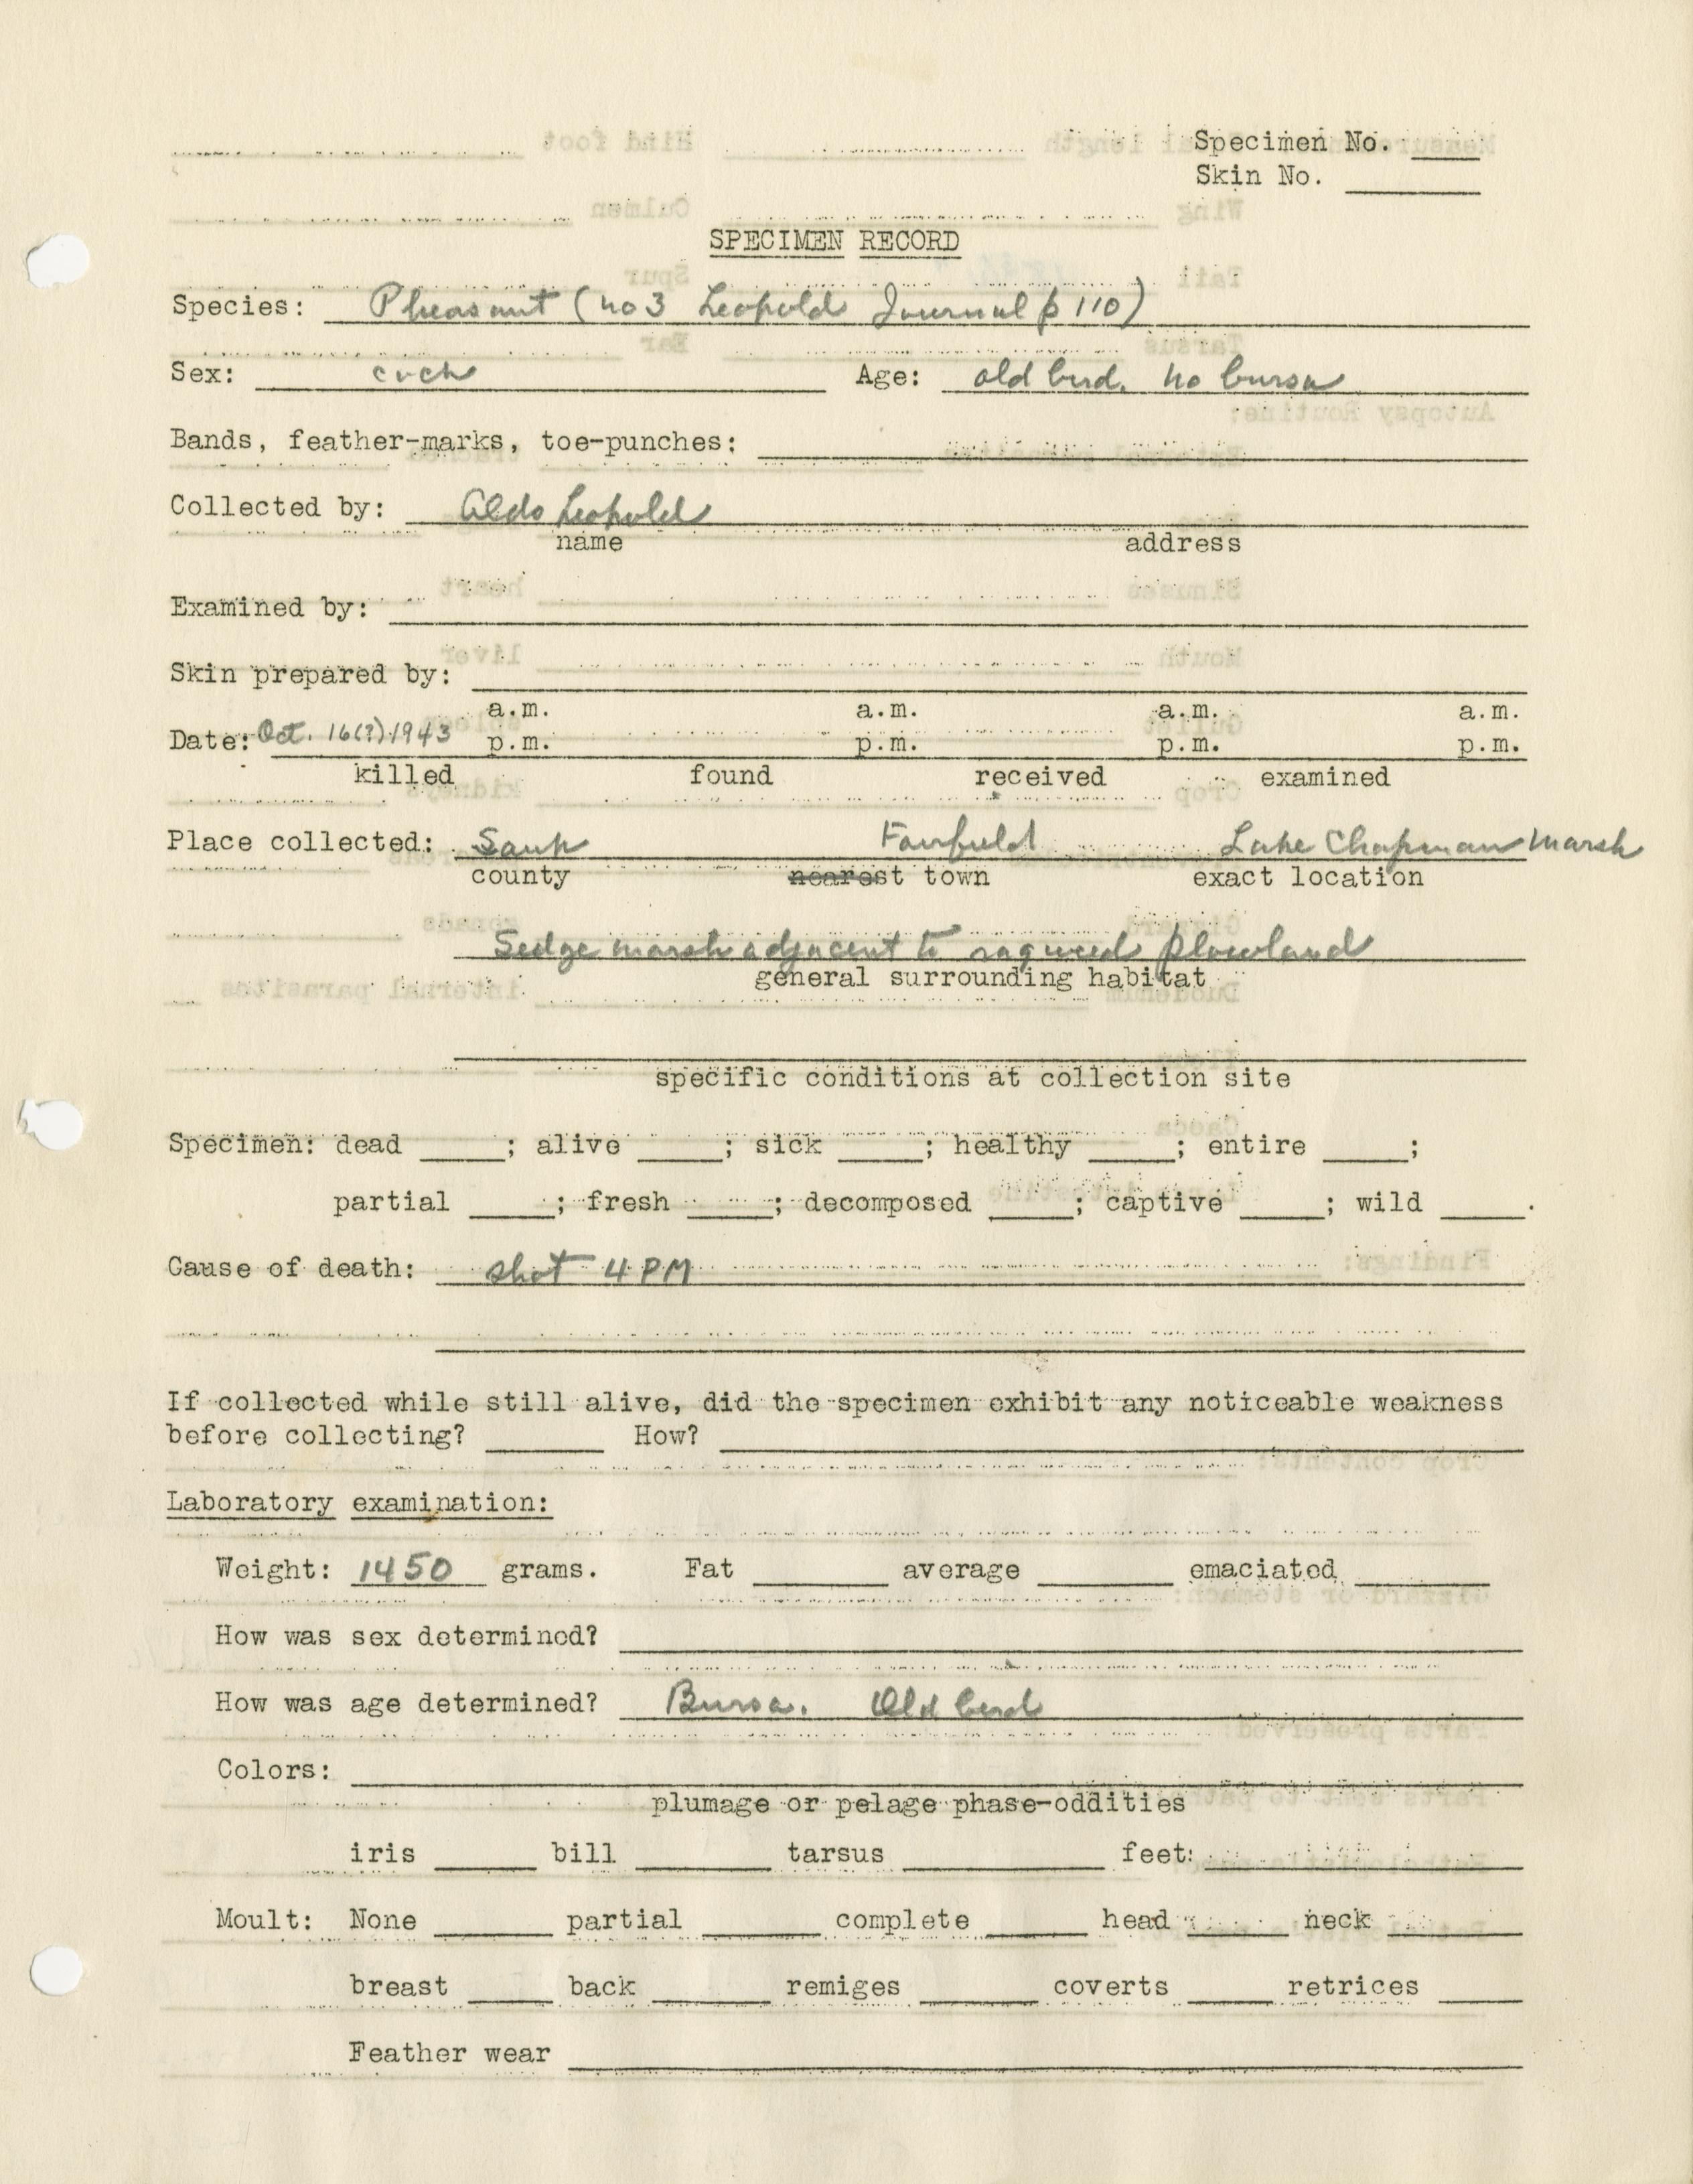 Specimen No. ____
Skin No. ____
SPECIMEN RECORD
Species: Pheasant (no 3 Leopold Journal p 110)
Sex: cock Age: old bird. no bursa
Bands, feather-marks, toe-punches:
Collected by: Aldo Leopold
name address
Examined by:
Skin prepared by:
a.m. a.m. a.m. a.m.
Date: Oct. 16(?) 1943 p.m. p.m. p.m. p.m.
killed found received examined
Place collected: Sauk Fairfield Lake Chapman Marsh
county nearest town exact location
Sedge marsh adjacent to ragweed plowland
general surrounding habitat
specific conditions at collection site
Specimen: dead ____; alive ____; sick ____; healthy ____; entire ____;
partial ____; fresh ____; decomposed ____; captive ____; wild ____.
Cause of death: shot 4 PM
If collected while still alive, did the specimen exhibit any noticeable weakness
before collecting? ____ How? ____
Laboratory examination:
Weight: 1450 grams. Fat ____ average ____ emaciated ____
How was sex determined?
How was age determined? Bursa. Old bird
Colors:
plumage or pelage phase-oddities
iris ____ bill ____ tarsus ____ feet: ____
Moult: None ____ partial ____ complete ____ head ____ neck ____
breast ____ back ____ remiges ____ coverts ____ retrices ____
Feather wear ____